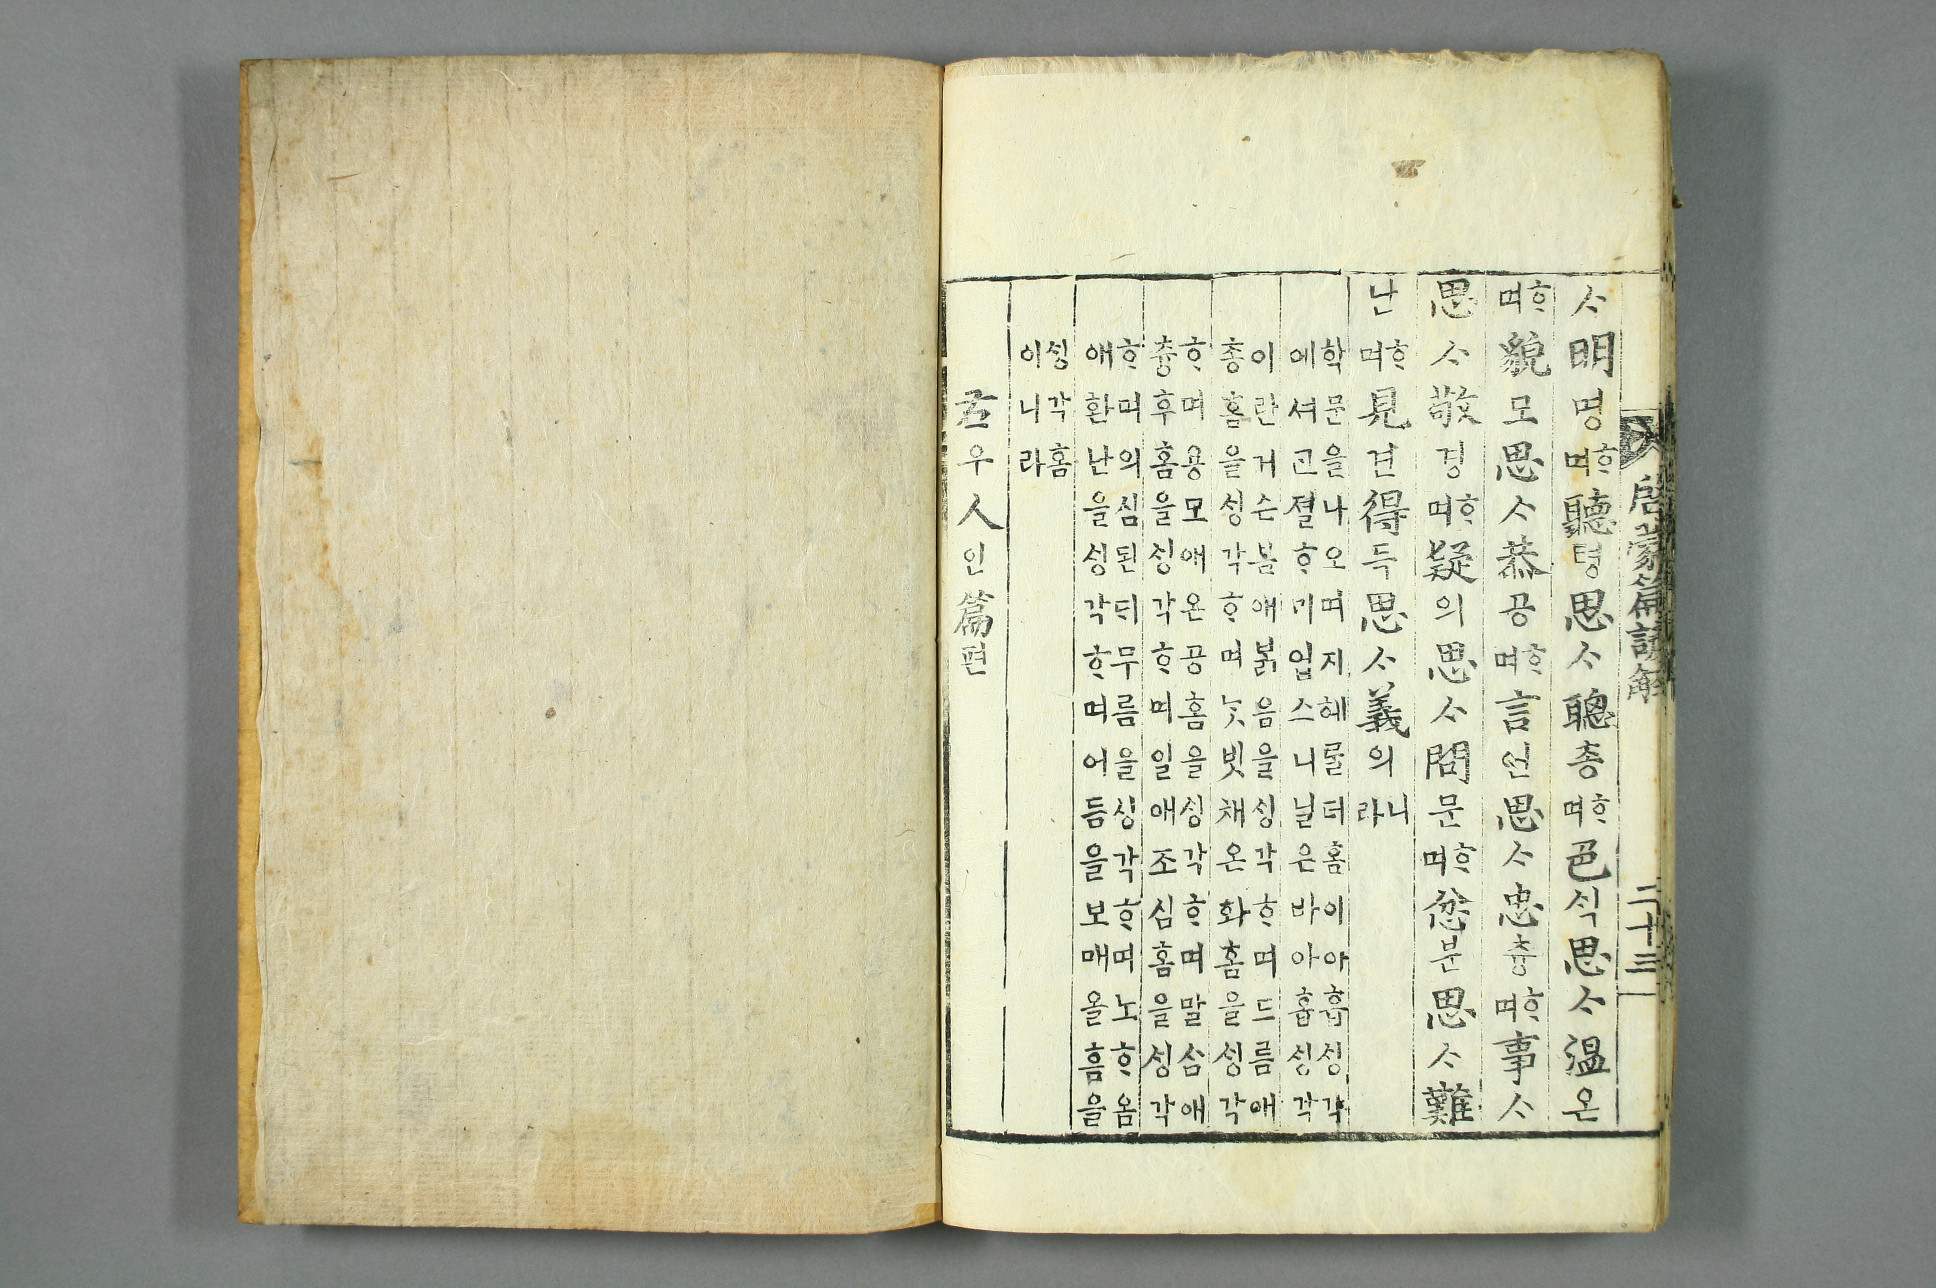 ᄉᆞ明명ᄒᆞ며聽텽思ᄉᆞ聰총ᄒᆞ며色ᄉᆡᆨ思ᄉᆞ溫온
ᄒᆞ며貌모思ᄉᆞ恭공ᄒᆞ며言언思ᄉᆞ忠츙ᄒᆞ며事ᄉᆞ
思ᄉᆞ敬경ᄒᆞ며疑의思ᄉᆞ問문ᄒᆞ며忿분思ᄉᆞ難
난ᄒᆞ며見견得득思ᄉᆞ義의니라
학문을나오며지혜ᄅᆞᆯ더홈이아홉ᄉᆡᆼ각
에셔고졀ᄒᆞ미업스니닐은바아홉ᄉᆡᆼ각
이란거슨봄애ᄇᆞᆰ음을ᄉᆡᆼ각ᄒᆞ며드름애
총홈을ᄉᆡᆼ각ᄒᆞ며ᄂᆞᆺ빗채온화홈을ᄉᆡᆼ각
ᄒᆞ며용모애온공홈을ᄉᆡᆼ각ᄒᆞ며말ᄉᆞᆷ애
츙후홈을ᄉᆡᆼ각ᄒᆞ며일애조심홈을ᄉᆡᆼ각
ᄒᆞ며의심된ᄃᆡ무름을ᄉᆡᆼ각ᄒᆞ며노ᄒᆞ옴
애환난을ᄉᆡᆼ각ᄒᆞ며어듬을보매올흠을
ᄉᆡᆼ각홈
이니라
右우人인篇편
啓蒙篇諺解
二十三